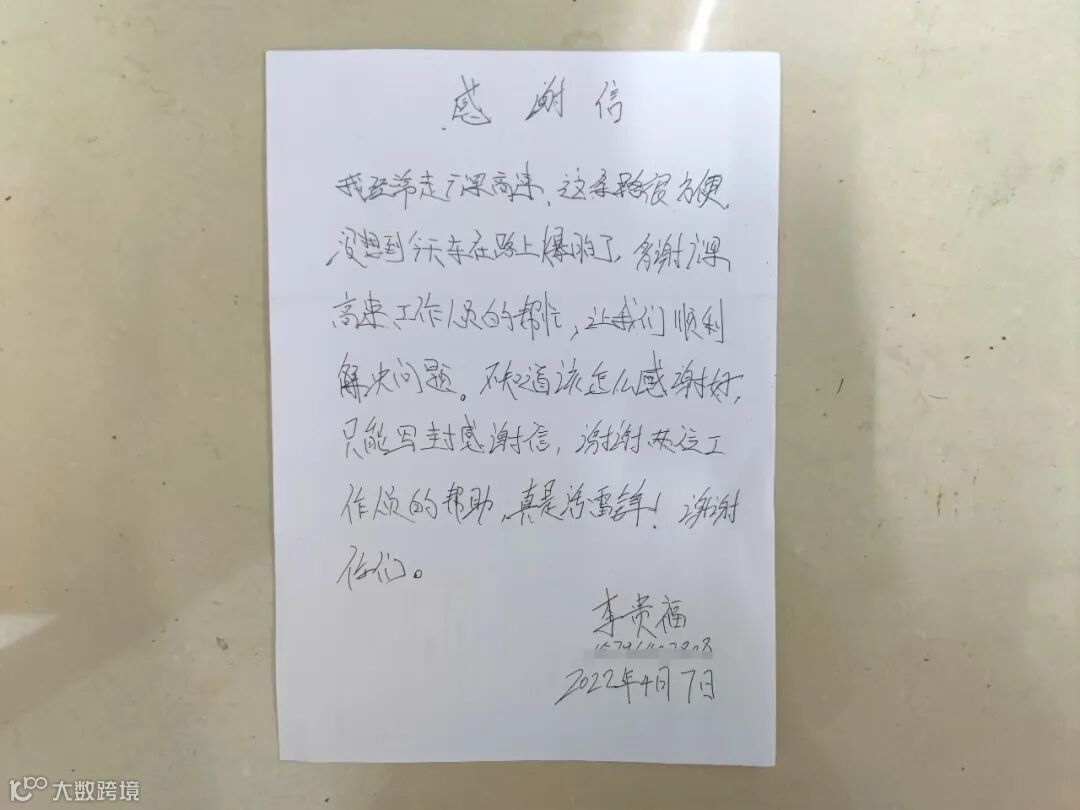 感谢信
我经常走高速,这条路很方便。
没想到今天车在路上爆胎了,多谢
高速工作人员的帮忙,让我们顺利
解决问题。不知道该怎么感谢好,
只能写封感谢信,谢谢两位工
作人员的帮助,真是活雷锋!谢谢
你们。
李贵福
2022年4月7日
大数跨境